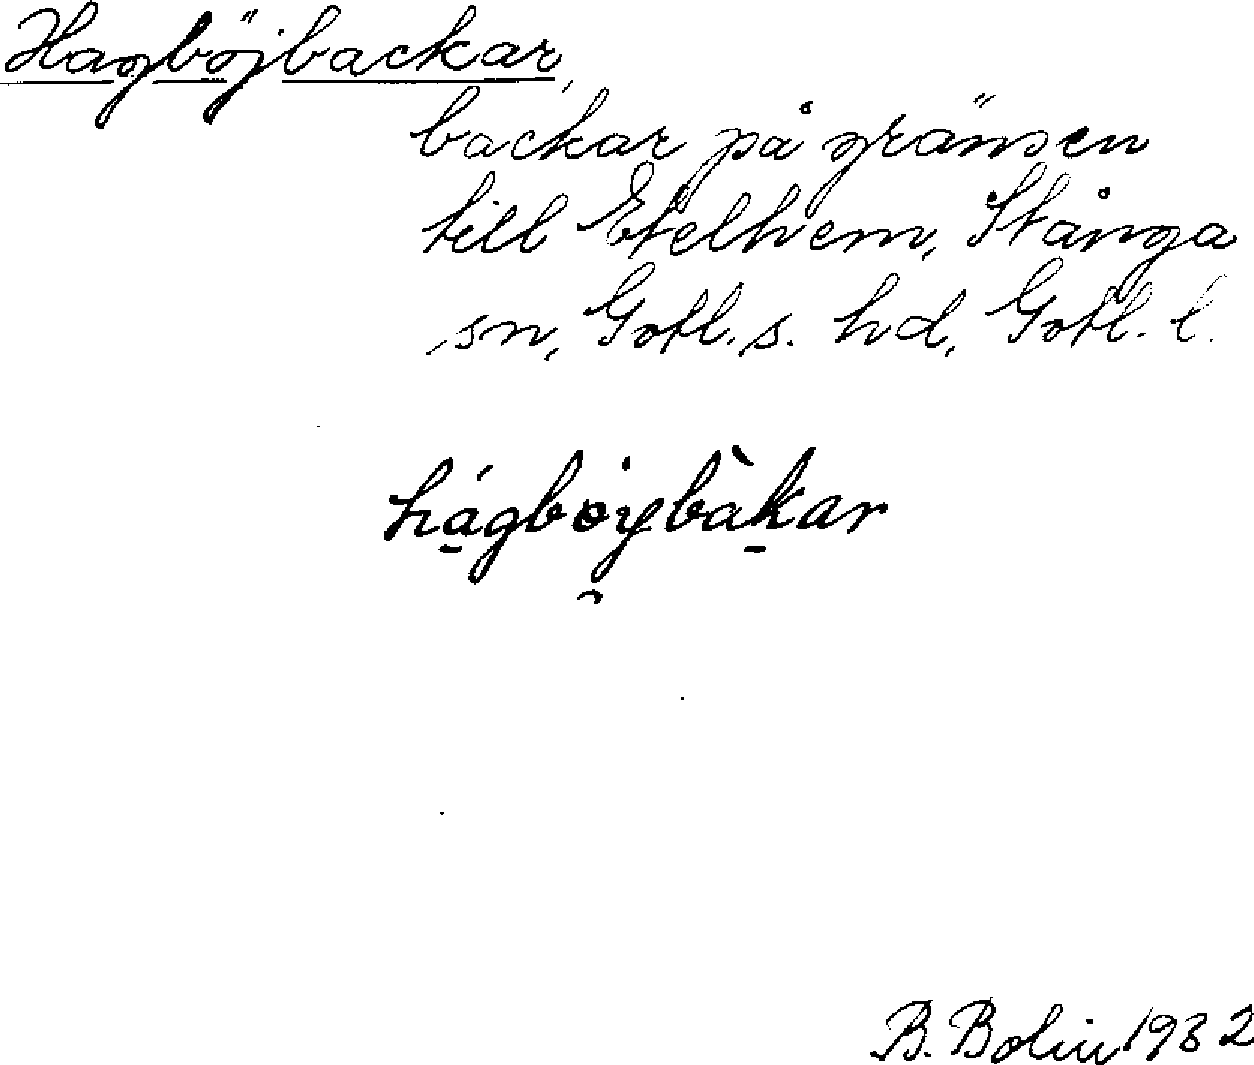 Hagböjbackar,
backar på gränsen
till Etelhem, Stånga
sn, Gotl. s. hd, Gotl. l.
hágbøybàkar
B. Bolin 1932